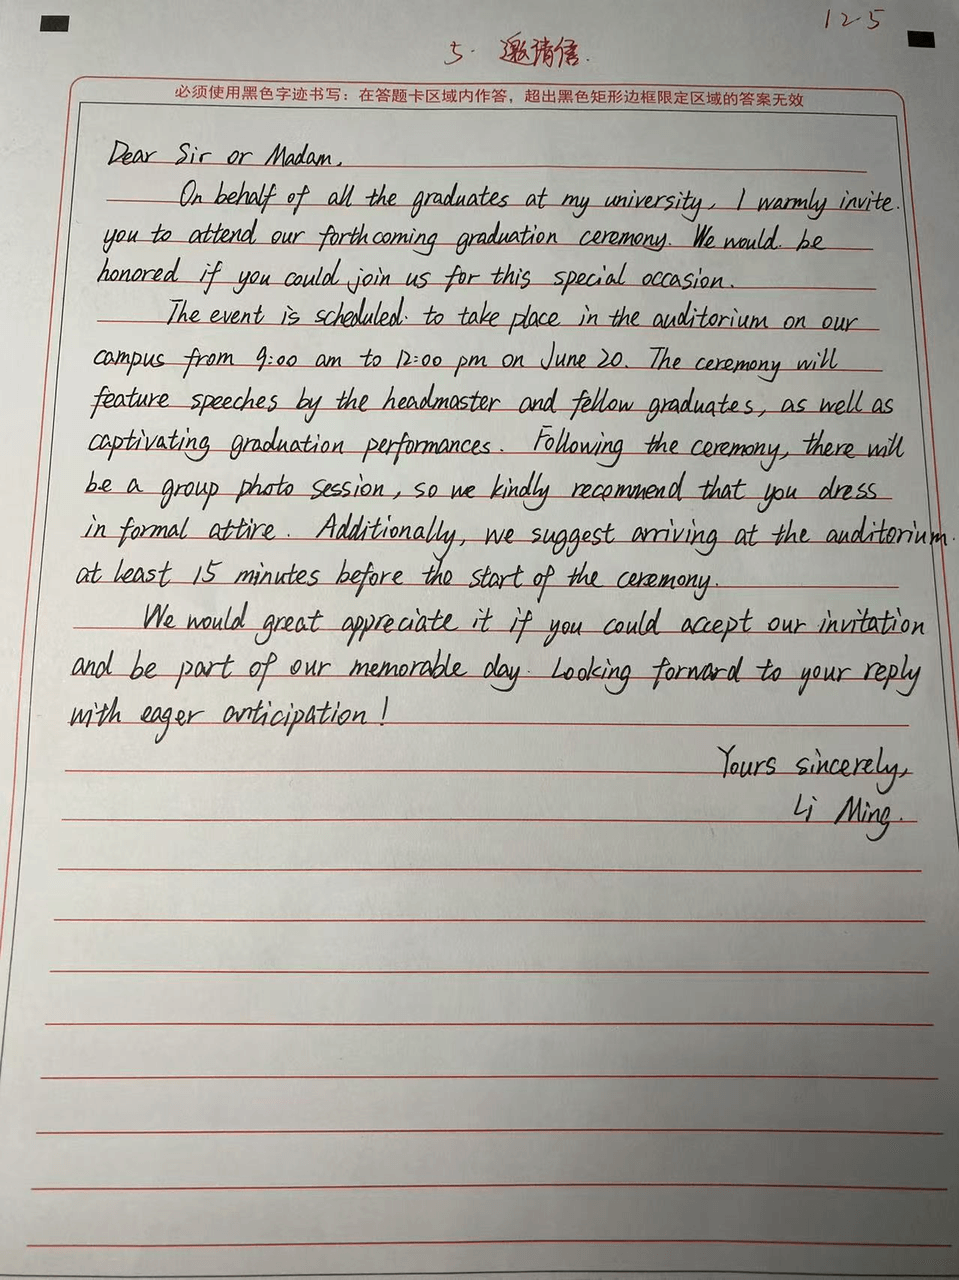 12-5
5. 邀请信.
必须使用黑色字迹书写：在答题卡区域内作答，超出黑色矩形边框限定区域的答案无效
Dear Sir or Madam,
On behalf of all the graduates at my university, I warmly invite
you to attend our forthcoming graduation ceremony. We would be
honored if you could join us for this special occasion.
The event is scheduled to take place in the auditorium on our
campus from 9:00 am to 12:00 pm on June 20. The ceremony will
feature speeches by the headmaster and fellow graduates, as well as
captivating graduation performances. Following the ceremony, there will
be a group photo session, so we kindly recommend that you dress
in formal attire. Additionally, we suggest arriving at the auditorium
at least 15 minutes before the start of the ceremony.
We would great appreciate it if you could accept our invitation
and be part of our memorable day. Looking forward to your reply
with eager anticipation!
Yours sincerely,
Li Ming.